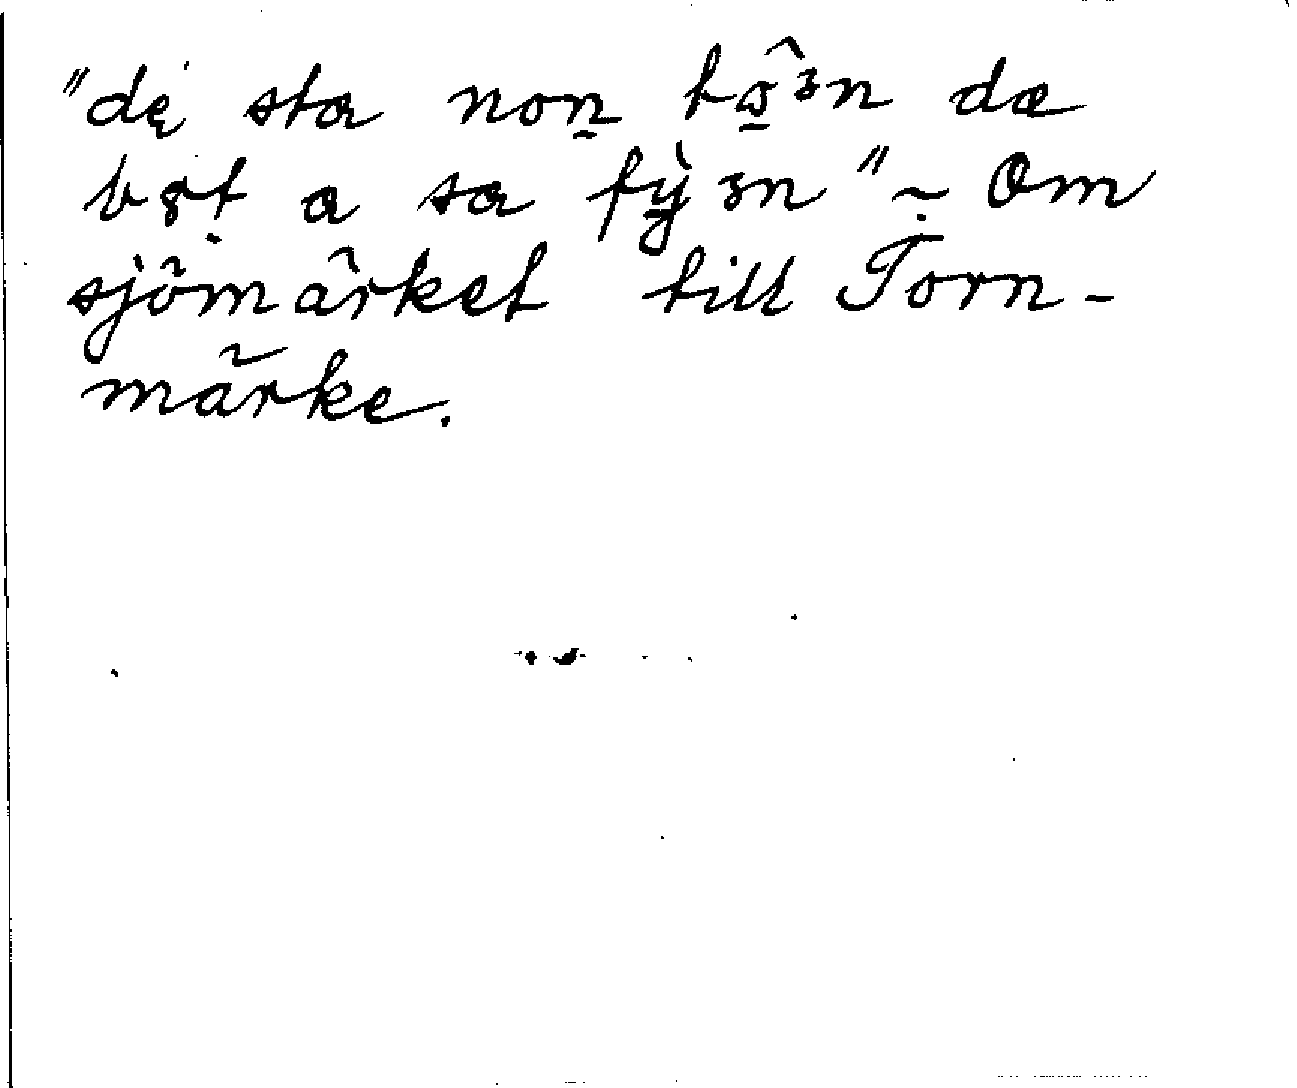 "dę sta non̲ tô̲ɜn dæ
bɤt a sa fỳ̲ɜn" ~ Om
sjömärket till Torn-
märke.